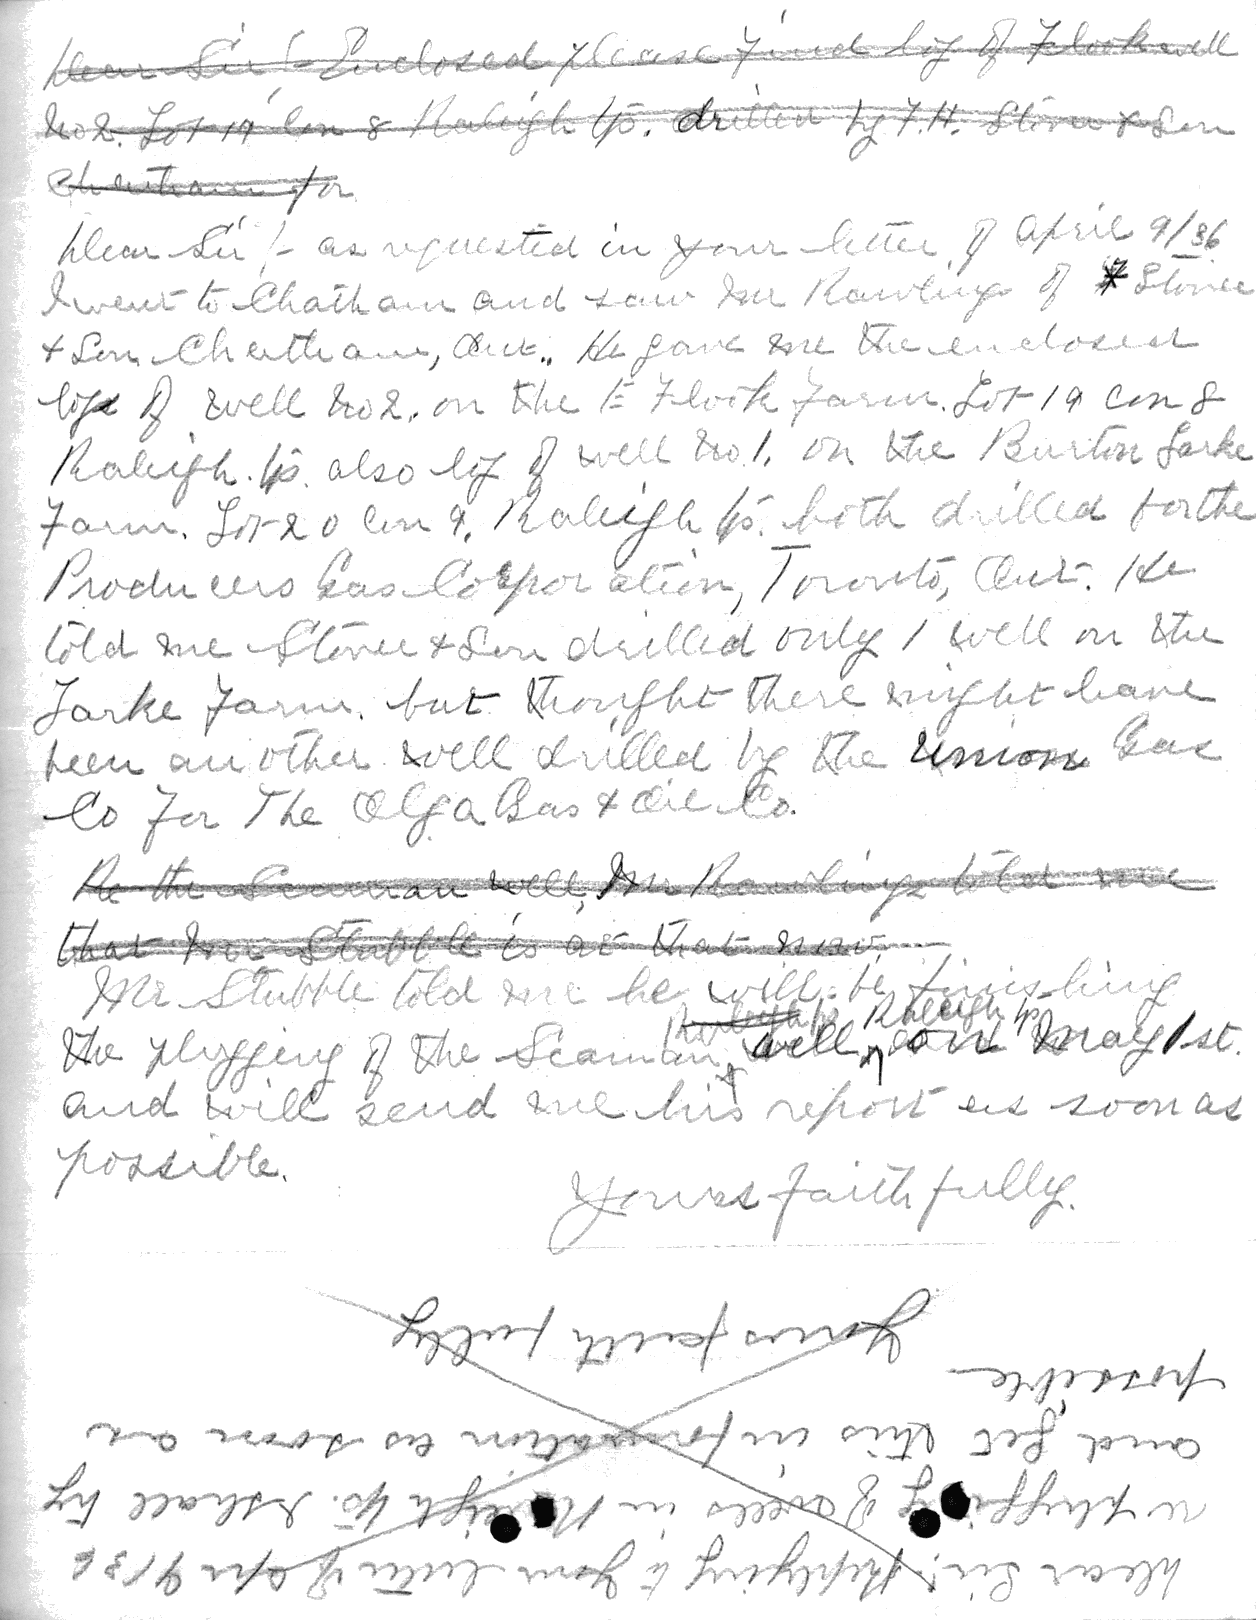 Dear Sir:- Enclosed please find log of Flook well
No 2. Lot 19 Con 8 Raleigh Tp. drilled by F.H. Stover & Son
Chatham for
Dear Sir:- as requested in your letter of April 9/36
I went to Chatham and saw Mr Rawlings of Stover
& Son Chatham, Ont.. He gave me the enclosed
logs of well No 2. on the E Flook Farm. Lot 19 Con 8
Raleigh. Tp. also log of well No 1. on the Burton Larke
Farm. Lot 20 Con 9. Raleigh Tp. both drilled for the
Producers Gas Corporation, Toronto, Ont. He
told me Stover & Son drilled only 1 well on the
Larke Farm. but thought there might have
been another well drilled by the Union Gas
Co For The Olga Gas & Oil Co.
Re the Seaman well, Mr Rawlings told me
that Mr Stubble is at that now.
Mr Stubble told me he will be finishing
Raleigh Tp Raleigh Tp
the plugging of the Seaman well, on May 1st.
and will send me his report as soon as
possible.
Yours faithfully.
Dear Sir:- Replying to your letter of Apr 9/36
re plugging of wells in Raleigh Tp. I shall try
and get this information as soon as
possible
Yours faithfully